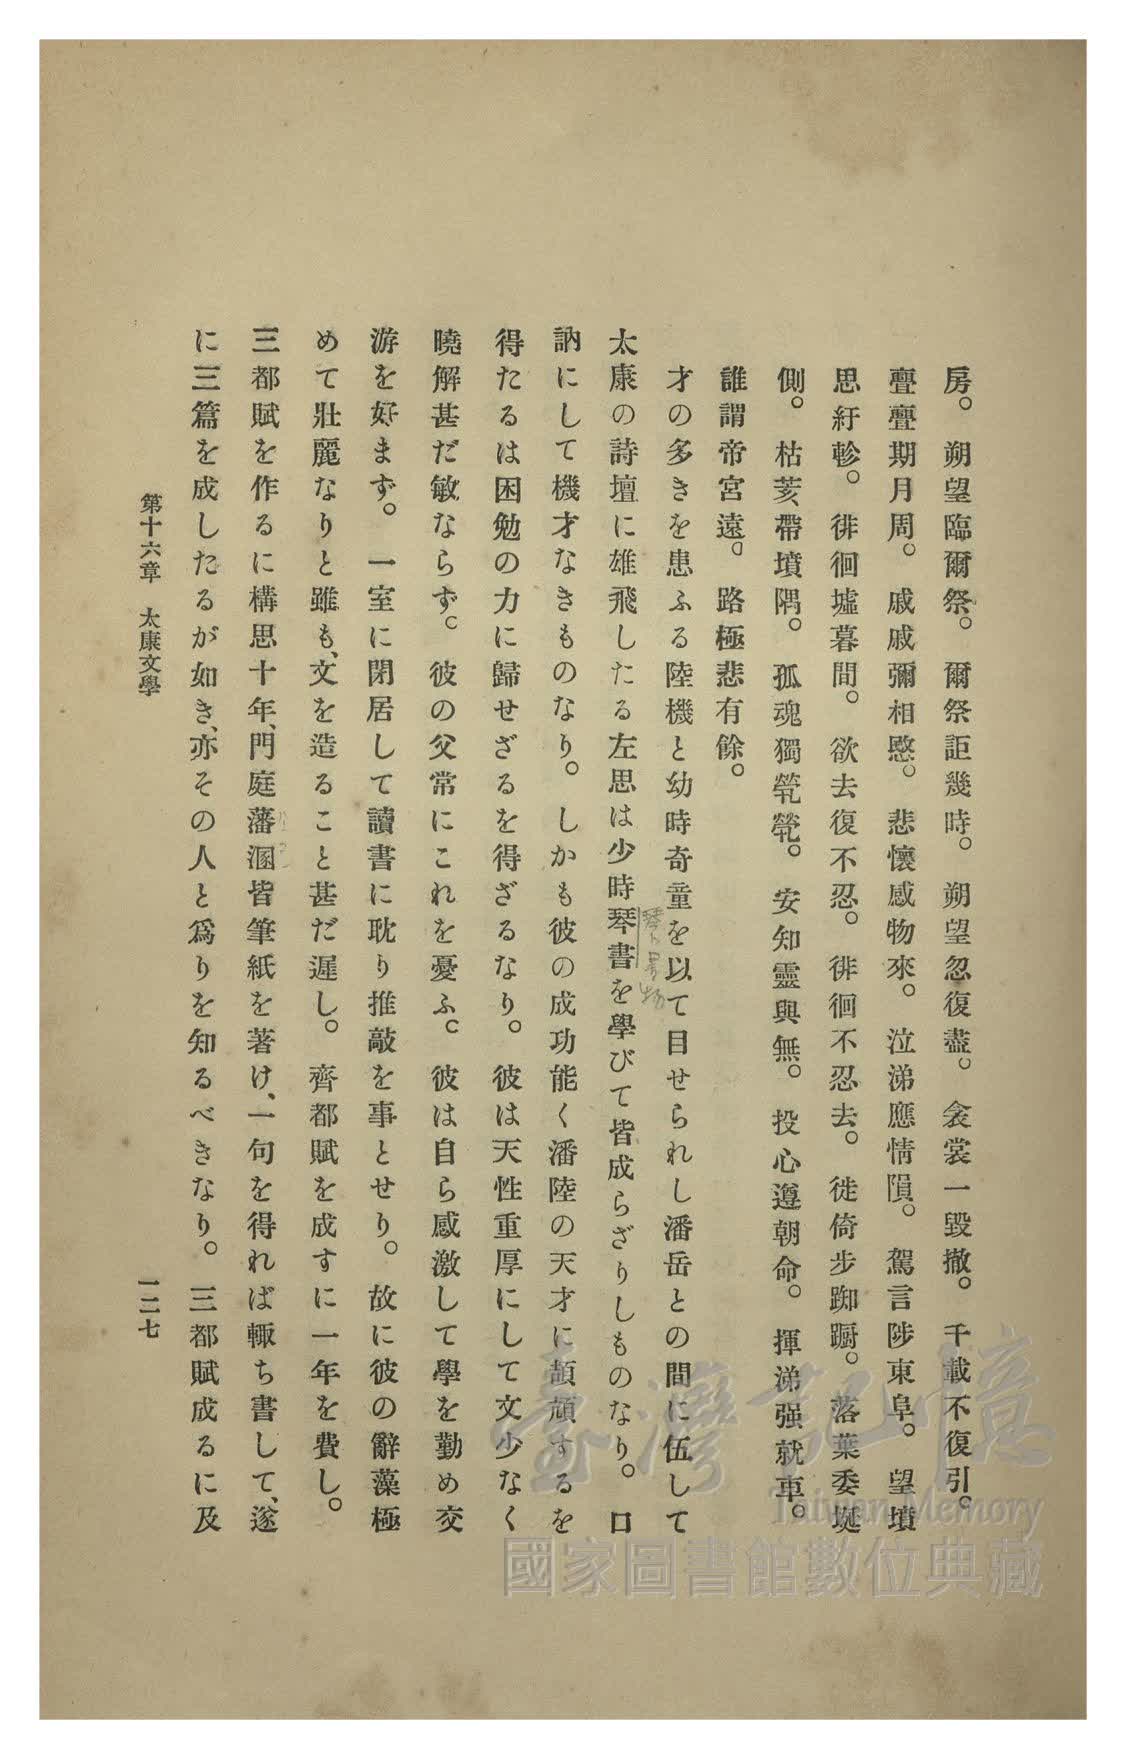 房。朔望臨爾祭。爾祭詎幾時。朔望忽復盡。衾裳一毀撤。千載不復引。
亹亹期月周。戚戚彌相愍。悲懷感物來。泣涕應情隕。駕言陟東阜。望墳
思紆軫。徘徊墟墓間。欲去復不忍。徘徊不忍去。徙倚步踟躕。落葉委埏
側。枯荄帶墳隅。孤魂獨煢煢。安知靈與無。投心遵朝命。揮涕强就車。
誰謂帝宮遠。路極悲有餘。
才の多きを患ふる陸機と幼時奇童を以て目せられし潘岳との間に伍して
太康の詩壇に雄飛したる左思は少時琴書を學びて皆成らざりしものなり。口
訥にして機才なきものなり。しかも彼の成功能く潘陸の天才に頡頏するを
得たるは困勉の力に歸せざるを得ざるなり。彼は天性重厚にして文少なく
曉解甚だ敏ならず。彼の父常にこれを憂ふ。彼は自ら感激して學を勤め交
游を好まず。一室に閉居して讀書に耽り推敲を事とせり。故に彼の辭藻極
めて壯麗なりと雖も、文を造ること甚だ遲し。齊都賦を成すに一年を費し。
三都賦を作るに構思十年、門庭藩溷皆筆紙を著け、一句を得れば輙ち書して、遂
に三篇を成したるが如き、亦その人と爲りを知るべきなり。三都賦成るに及
第十六章 太康文學
一二七
臺灣記憶
Taiwan Memory
國家圖書館數位典藏